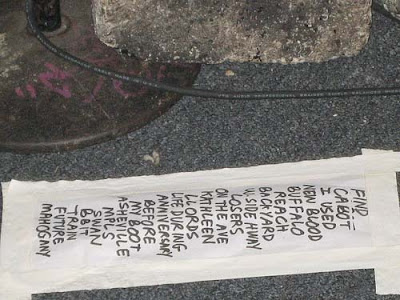 FIND
CABOT
I USED
NEW BLOOD
BUFFALO
BACKYARD
LOSERS
ON THE AVE
KATHLEEN
LLORDS
LIFE DURING
ANNIVERSARY
BEFORE
MY BOOT
ASHEVILLE
MPLS
SWAN
TRAIN
FUTURE
MAHOGANY